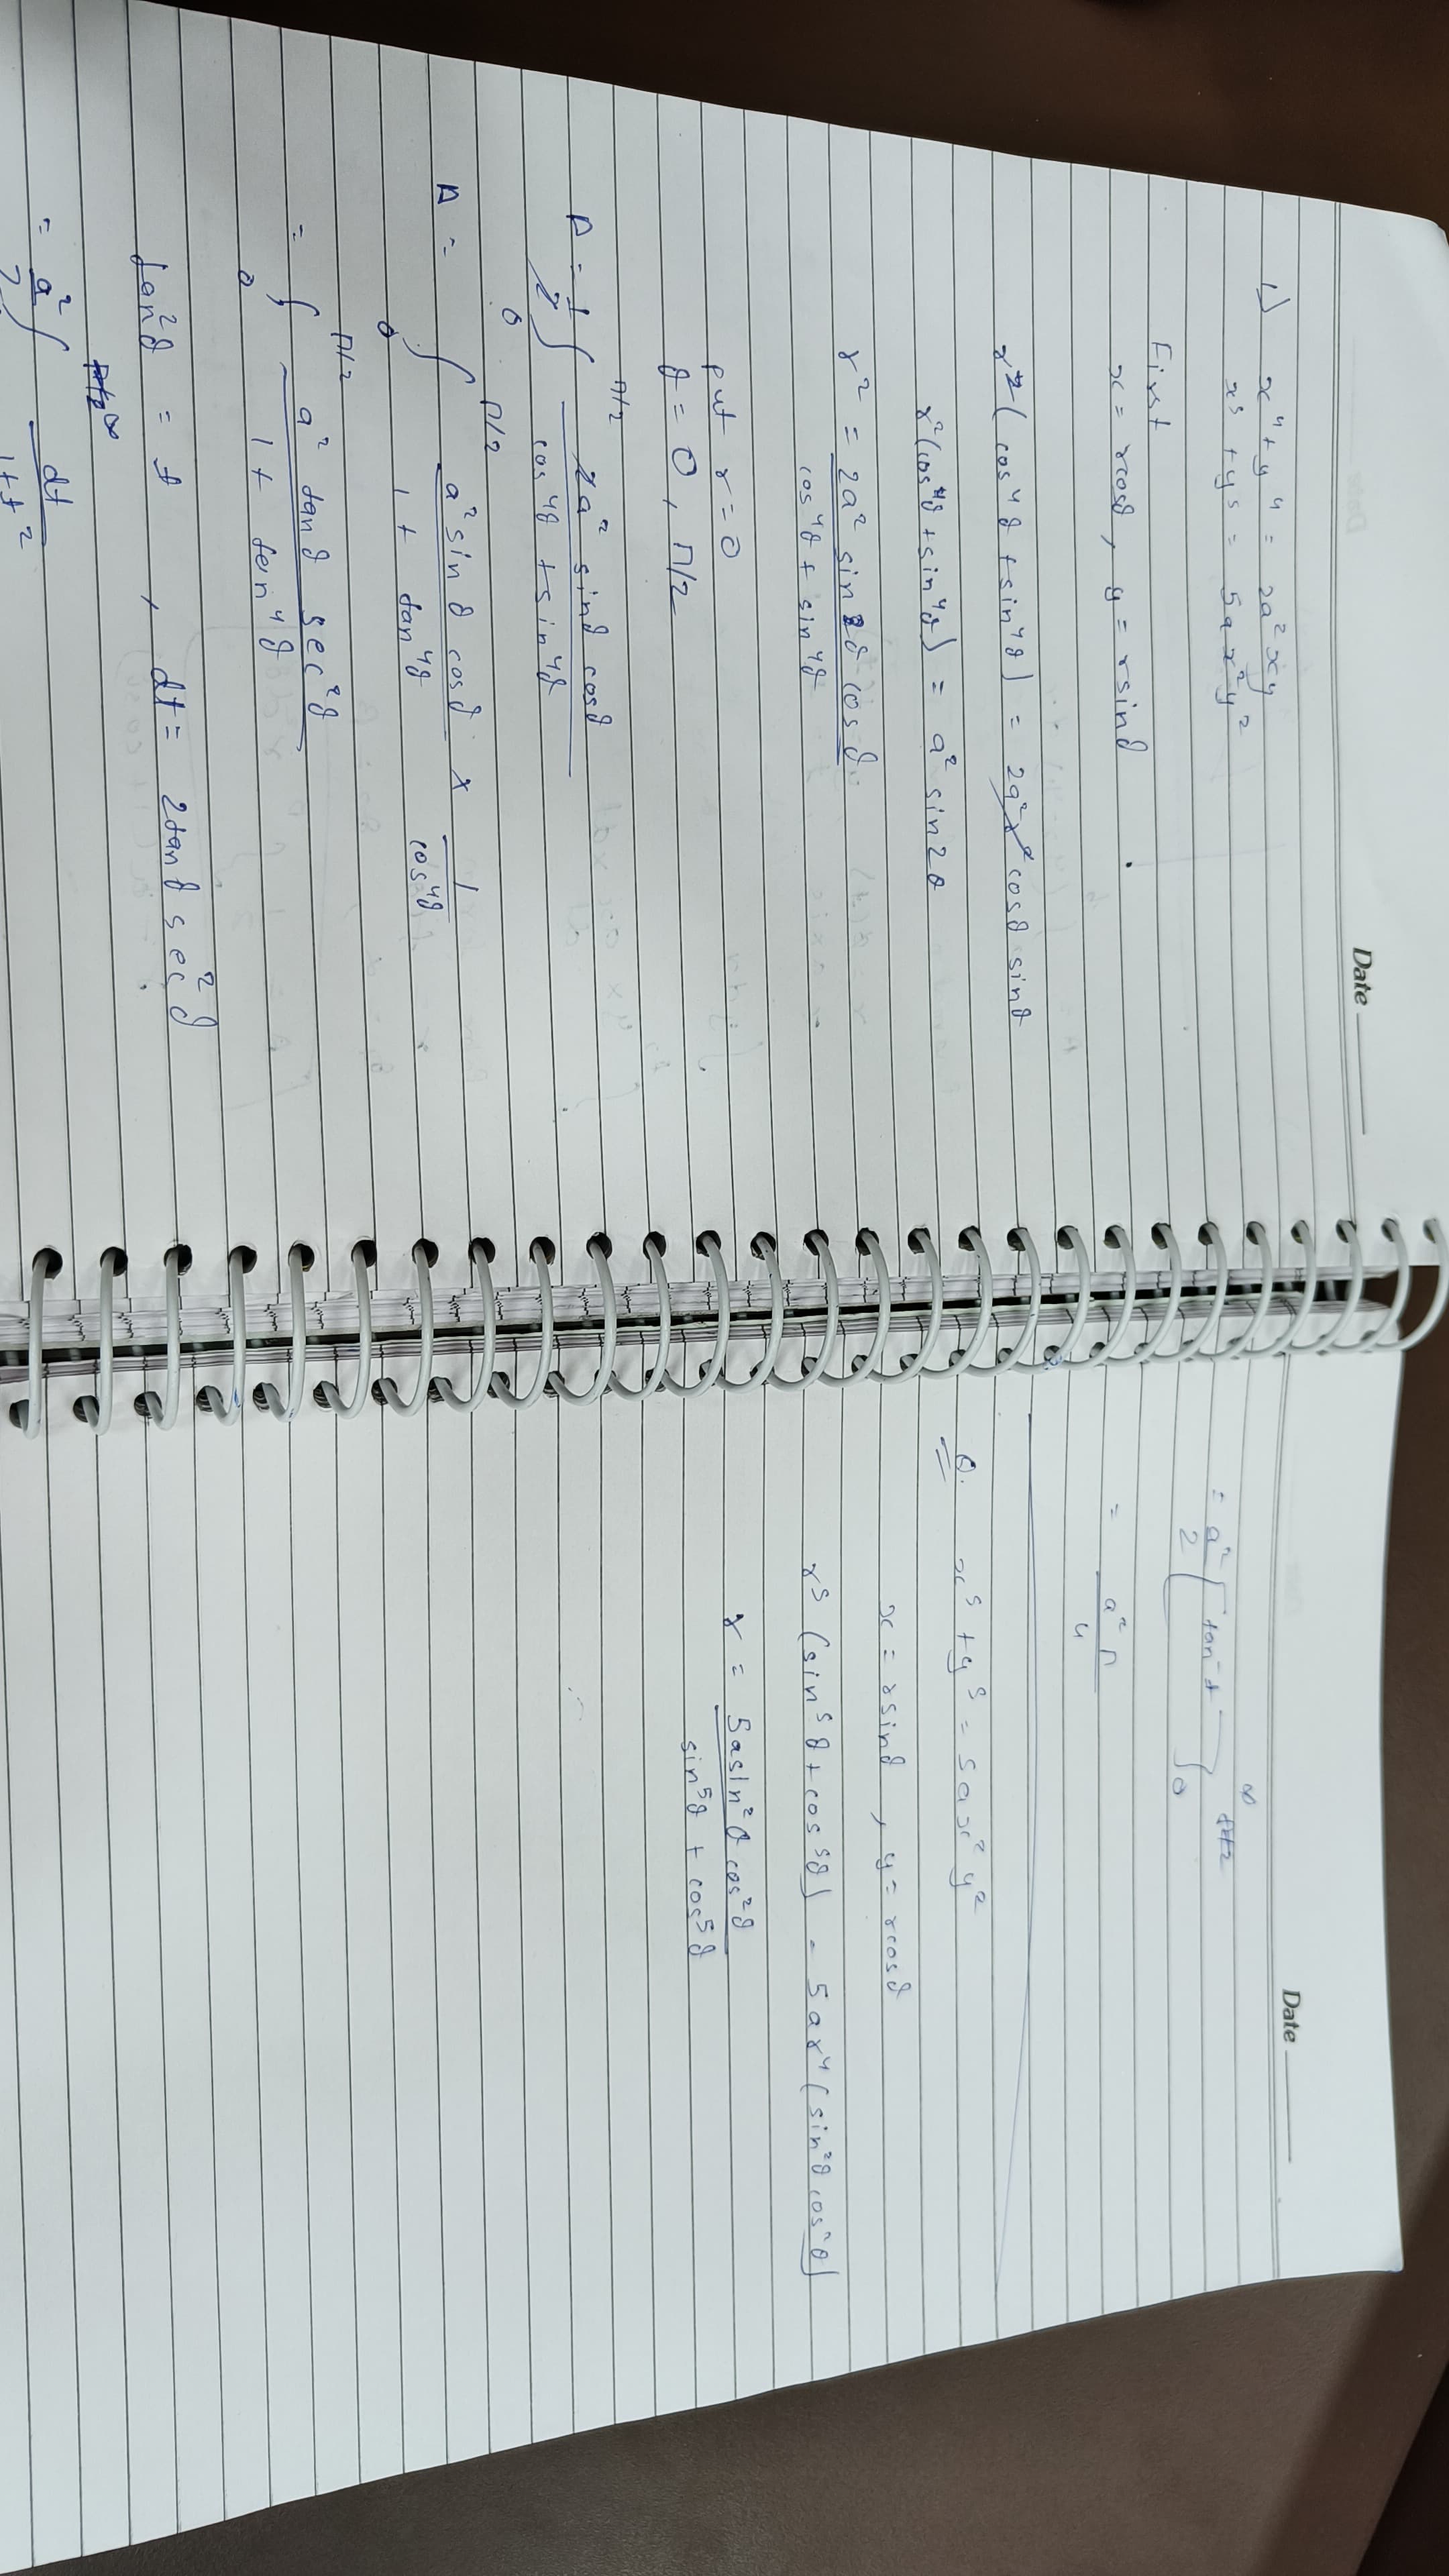 Date
1) x⁴ + y⁴ = 2a²xy
x⁵ + y⁵ = 5ax²y²
First
x = rcosθ, y = rsinθ
r⁴² (cos⁴θ + sin⁴θ) = 2a²r² cosθ sinθ
r²(cos⁴θ + sin⁴θ) = a² sin2θ
r² = 2a² sinθ cosθ
cos⁴θ + sin⁴θ
put r = 0
θ = 0, π/2
A = 1/2 ∫₀^π/2 2a² sinθ cosθ / cos⁴θ + sin⁴θ
A = ∫₀^π/2 a² sinθ cosθ / 1 + tan⁴θ × 1/cos⁴θ
= ∫₀^π/2 a² tanθ sec²θ / 1 + tan⁴θ
tan²θ = t, dt = 2tanθ sec²θ
= a²/2 ∫ ^∞ dt / 1+t²
Date
= a²/2 [tan⁻¹t]₀^∞
= a²π / 4
Q. x⁵ + y⁵ = 5ax²y²
x = rsinθ, y = rcosθ
r⁵ (sin⁵θ + cos⁵θ) = 5ar⁴ (sin²θ cos²θ)
r = 5asin²θ cos²θ
sin⁵θ + cos⁵θ